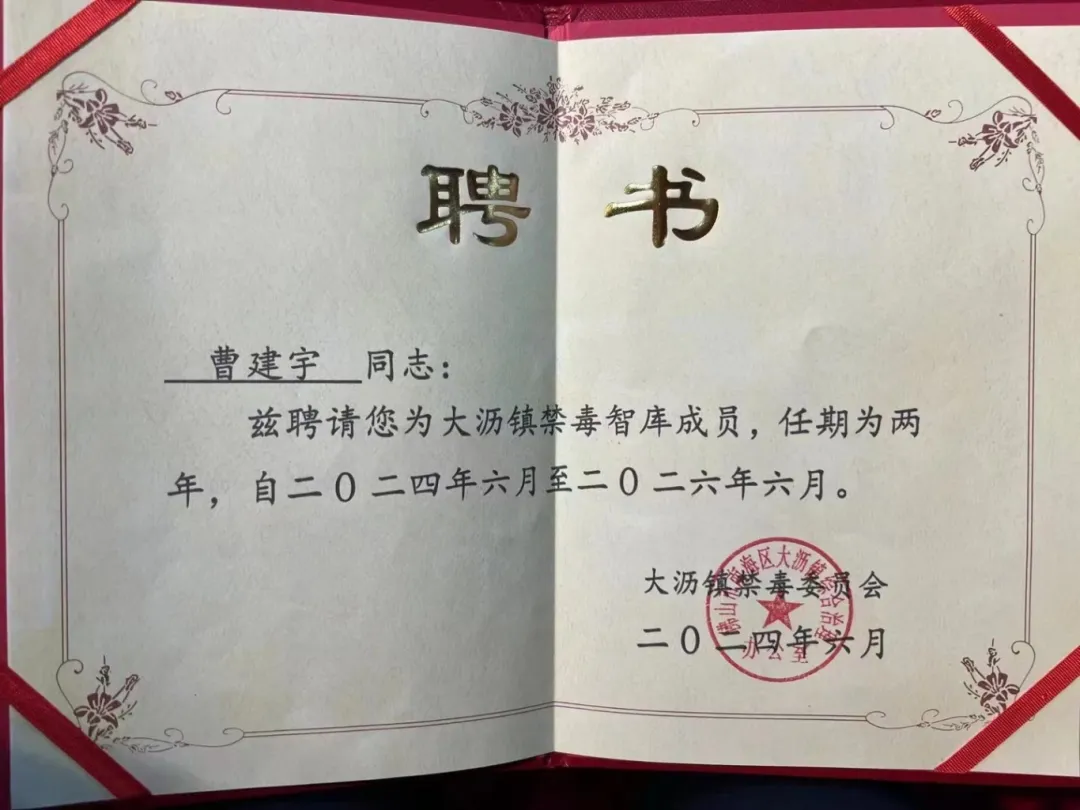 聘书
曹建宇 同志：
兹聘请您为大沥镇禁毒智库成员，任期为两
年，自二〇二四年六月至二〇二六年六月。
大沥镇禁毒委员会
二〇二四年六月
佛山市南海区大沥镇综合治理
办公室